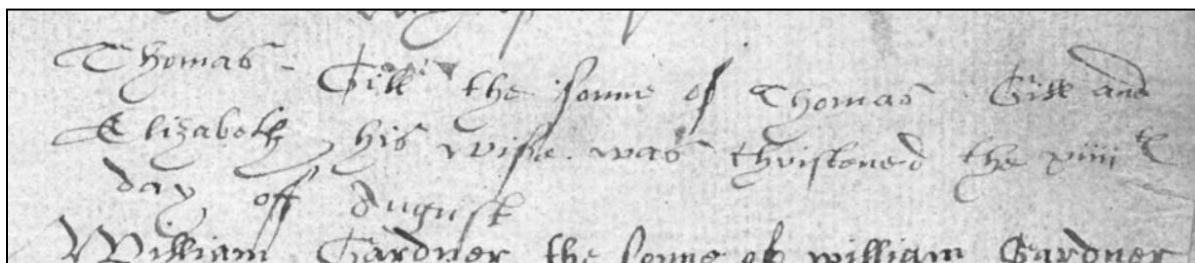 Thomas - Gill the sonne of Thomas Gill and
Elizabeth his wife was christened the xiiii th
day off August
William Gardner the sonne of william Gardner